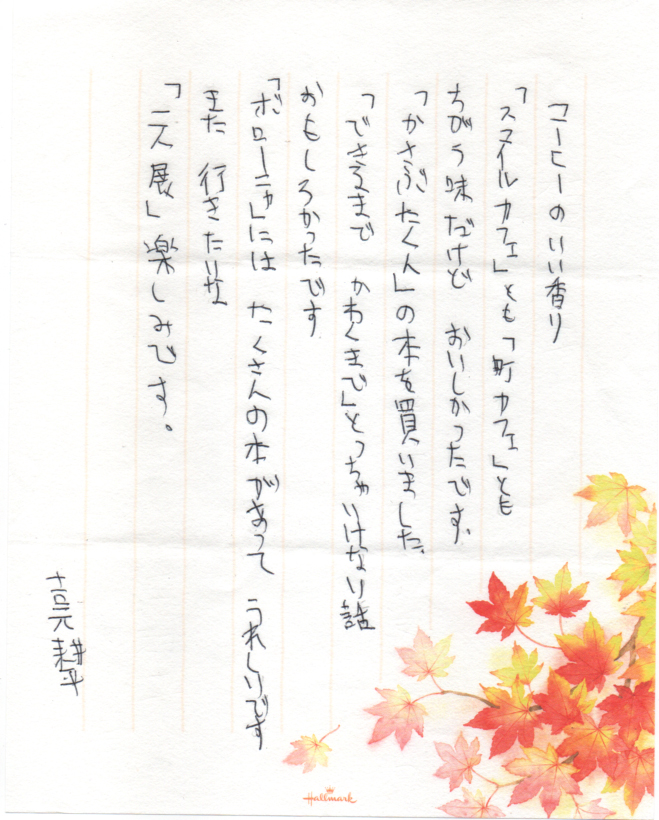 コーヒーのいい香り
「スタイルカフェ」とも「町カフェ」とも
ちがう味だけど おいしかったです。
「かさぶたくん」の本を買いました。
「できるまで かわくまで」とっちゃいけない話
おもしろかったです
「ボローニャ」には たくさんの本があって うれしいです
また 行きたいな
展」楽しみです。
元 耕平
Hallmark